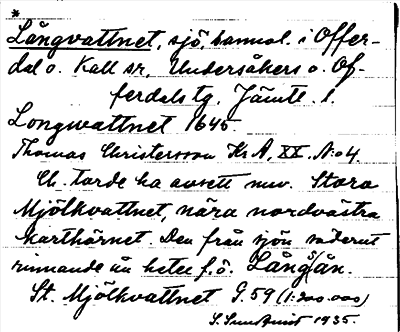 *
Långvattnet, sjö, kamral. i Offer-
dal o. Kall sn, Undersåkers o. Of-
ferdals tg, Jämtl. l.
Longwattnet 1645.
Thomas Christersson Kr A, XX. N:o 4.
Ch. torde ha avsett nuv. Stora
Mjölkvattnet, nära nordvästra
karthörnet. Den från sjön söderut
rinnande ån heter f.ö. Lång(s)ån.
St. Mjölkvattnet G. 59 (1:200.000)
S. Sundqvist 1935.